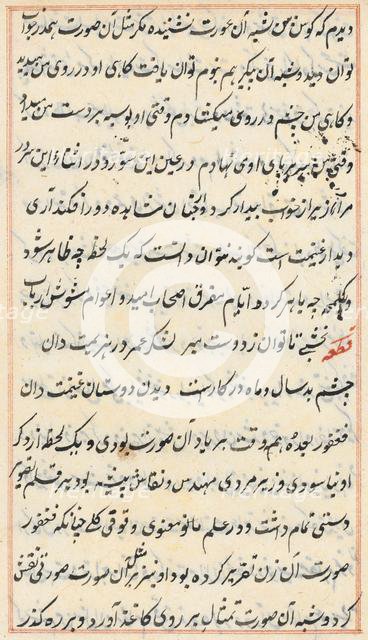 دیدم که گوش من شبه آن عورت نشنیده مگر مثل آن صورت هم در خواب
توان دید و شبه آن پیکر هم بنوم توان یافت گاهی او در روی من میدید
و گاهی من چشم در روی میکشادم وقتی او بوسه بر دست من میداد
وقتی من سر بر پای او می نهادم در عین این سور و در اثناء این سرور
مرا از خواب بیدار کرد و از چنان مشاهده دور افکند آری
دیدار غنیمت است کو نتوان دانست که یک لحظه چه ظاهر شود
چه باهر کردد ایام متفرق اصحاب امید و اعوام مشوش ارباب
قطعه نخشبی تا توان ز دوست مبر لشکر عمر در هزیمت دان
چشم بد سال و ماه در کار است دیدن دوستان غنیمت دان
فغفور بعده همه وقت بر یاد آن صورت بودی و یک لحظه از ذکر
او نیاسودی وزیر مردی مهندس و نقاش بیشه بود بر قلم تصویر
دستی تمام داشت و در علم مانو معنوی وقوفی کلی چنانکه فغفور
صورت آن زن تقریر کرده بود او نیز مثل آن صورت صورتی نقش
کرد و شبه آن صورت تمثال بر روی کاغذ آورد و بر ره کذر
Heritage
Images